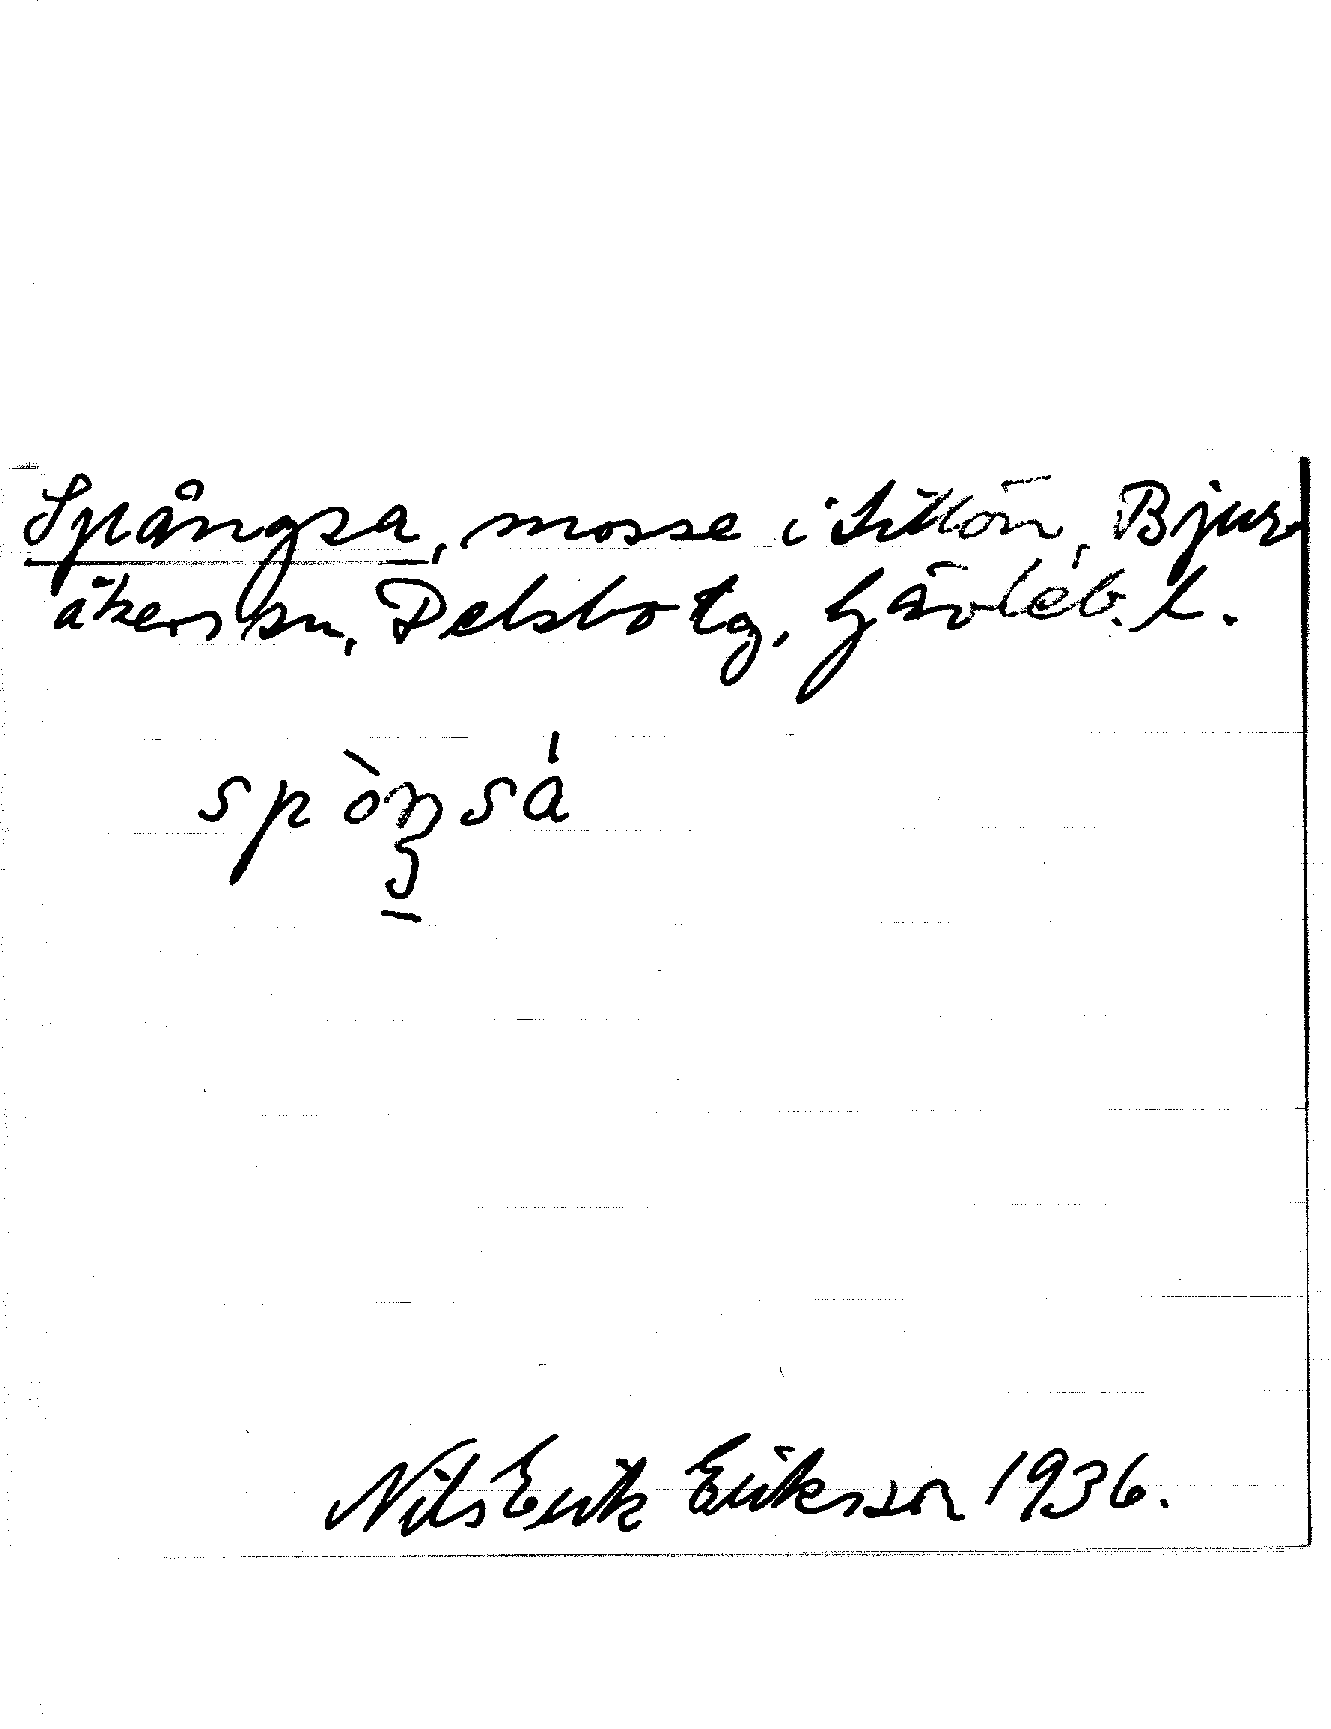 Spångsa, mosse i Sittön, Bjur-
åkers sn, Delsbo tg, Gävleb. l.
spòŋsá
Nils Erik Eriksson 1936.